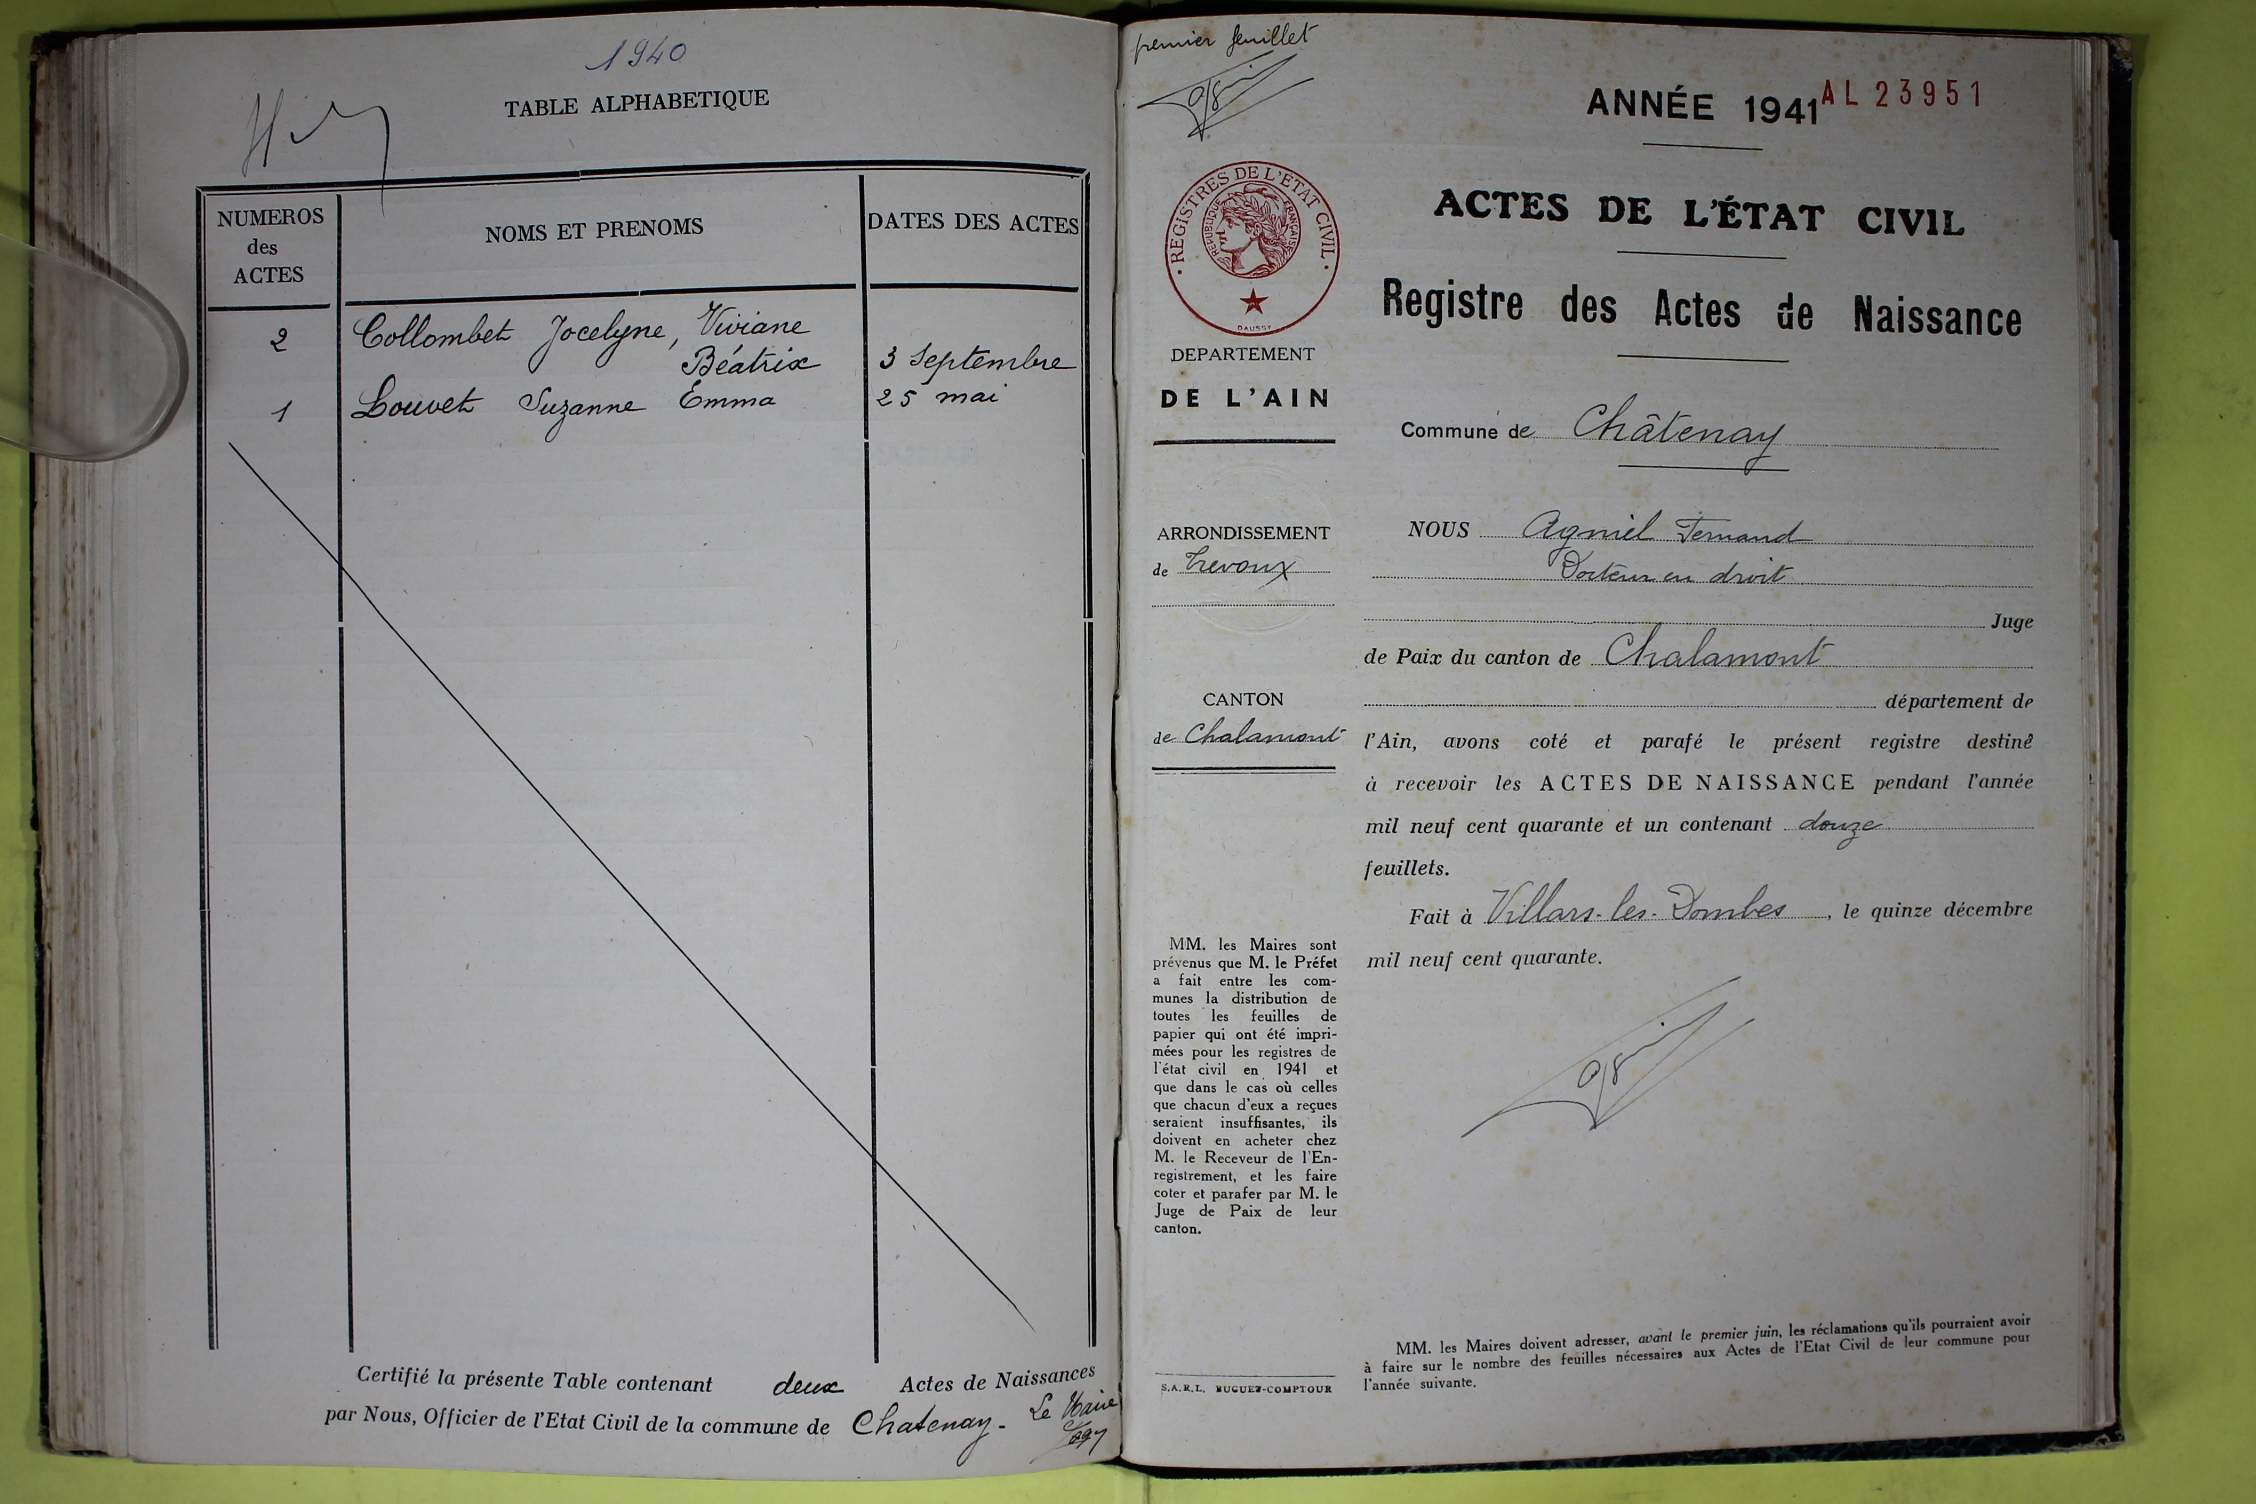 1940
TABLE ALPHABETIQUE
NUMEROS
des
ACTES
NOMS ET PRENOMS
DATES DES ACTES
2 Collombet Jocelyne, Viviane
Béatrix 3 Septembre
1 Louvet Suzanne Emma 25 mai
Certifié la présente Table contenant deux Actes de Naissances
par Nous, Officier de l'Etat Civil de la commune de Chatenay - Le Maire
premier feuillet
ANNÉE 1941 AL 23951
REGISTRES DE L'ETAT CIVIL
REPUBLIQUE FRANÇAISE
DAUSSY
ACTES DE L'ÉTAT CIVIL
Registre des Actes de Naissance
DEPARTEMENT
DE L'AIN
Commune de Châtenay
ARRONDISSEMENT
de Trevoux
CANTON
de Chalamont
NOUS Agniel Fernand
Docteur en droit
Juge
de Paix du canton de Chalamont
département de
l'Ain, avons coté et parafé le présent registre destiné
à recevoir les ACTES DE NAISSANCE pendant l'année
mil neuf cent quarante et un contenant douze
feuillets.
Fait à Villars-les-Dombes, le quinze décembre
mil neuf cent quarante.
MM. les Maires sont
prévenus que M. le Préfet
a fait entre les com-
munes la distribution de
toutes les feuilles de
papier qui ont été impri-
mées pour les registres de
l'état civil en 1941 et
que dans le cas où celles
que chacun d'eux a reçues
seraient insuffisantes, ils
doivent en acheter chez
M. le Receveur de l'En-
registrement, et les faire
coter et parafer par M. le
Juge de Paix de leur
canton.
S.A.R.L. HUGUET-COMPTOUR
MM. les Maires doivent adresser, avant le premier juin, les réclamations qu'ils pourraient avoir
à faire sur le nombre des feuilles nécessaires aux Actes de l'Etat Civil de leur commune pour
l'année suivante.